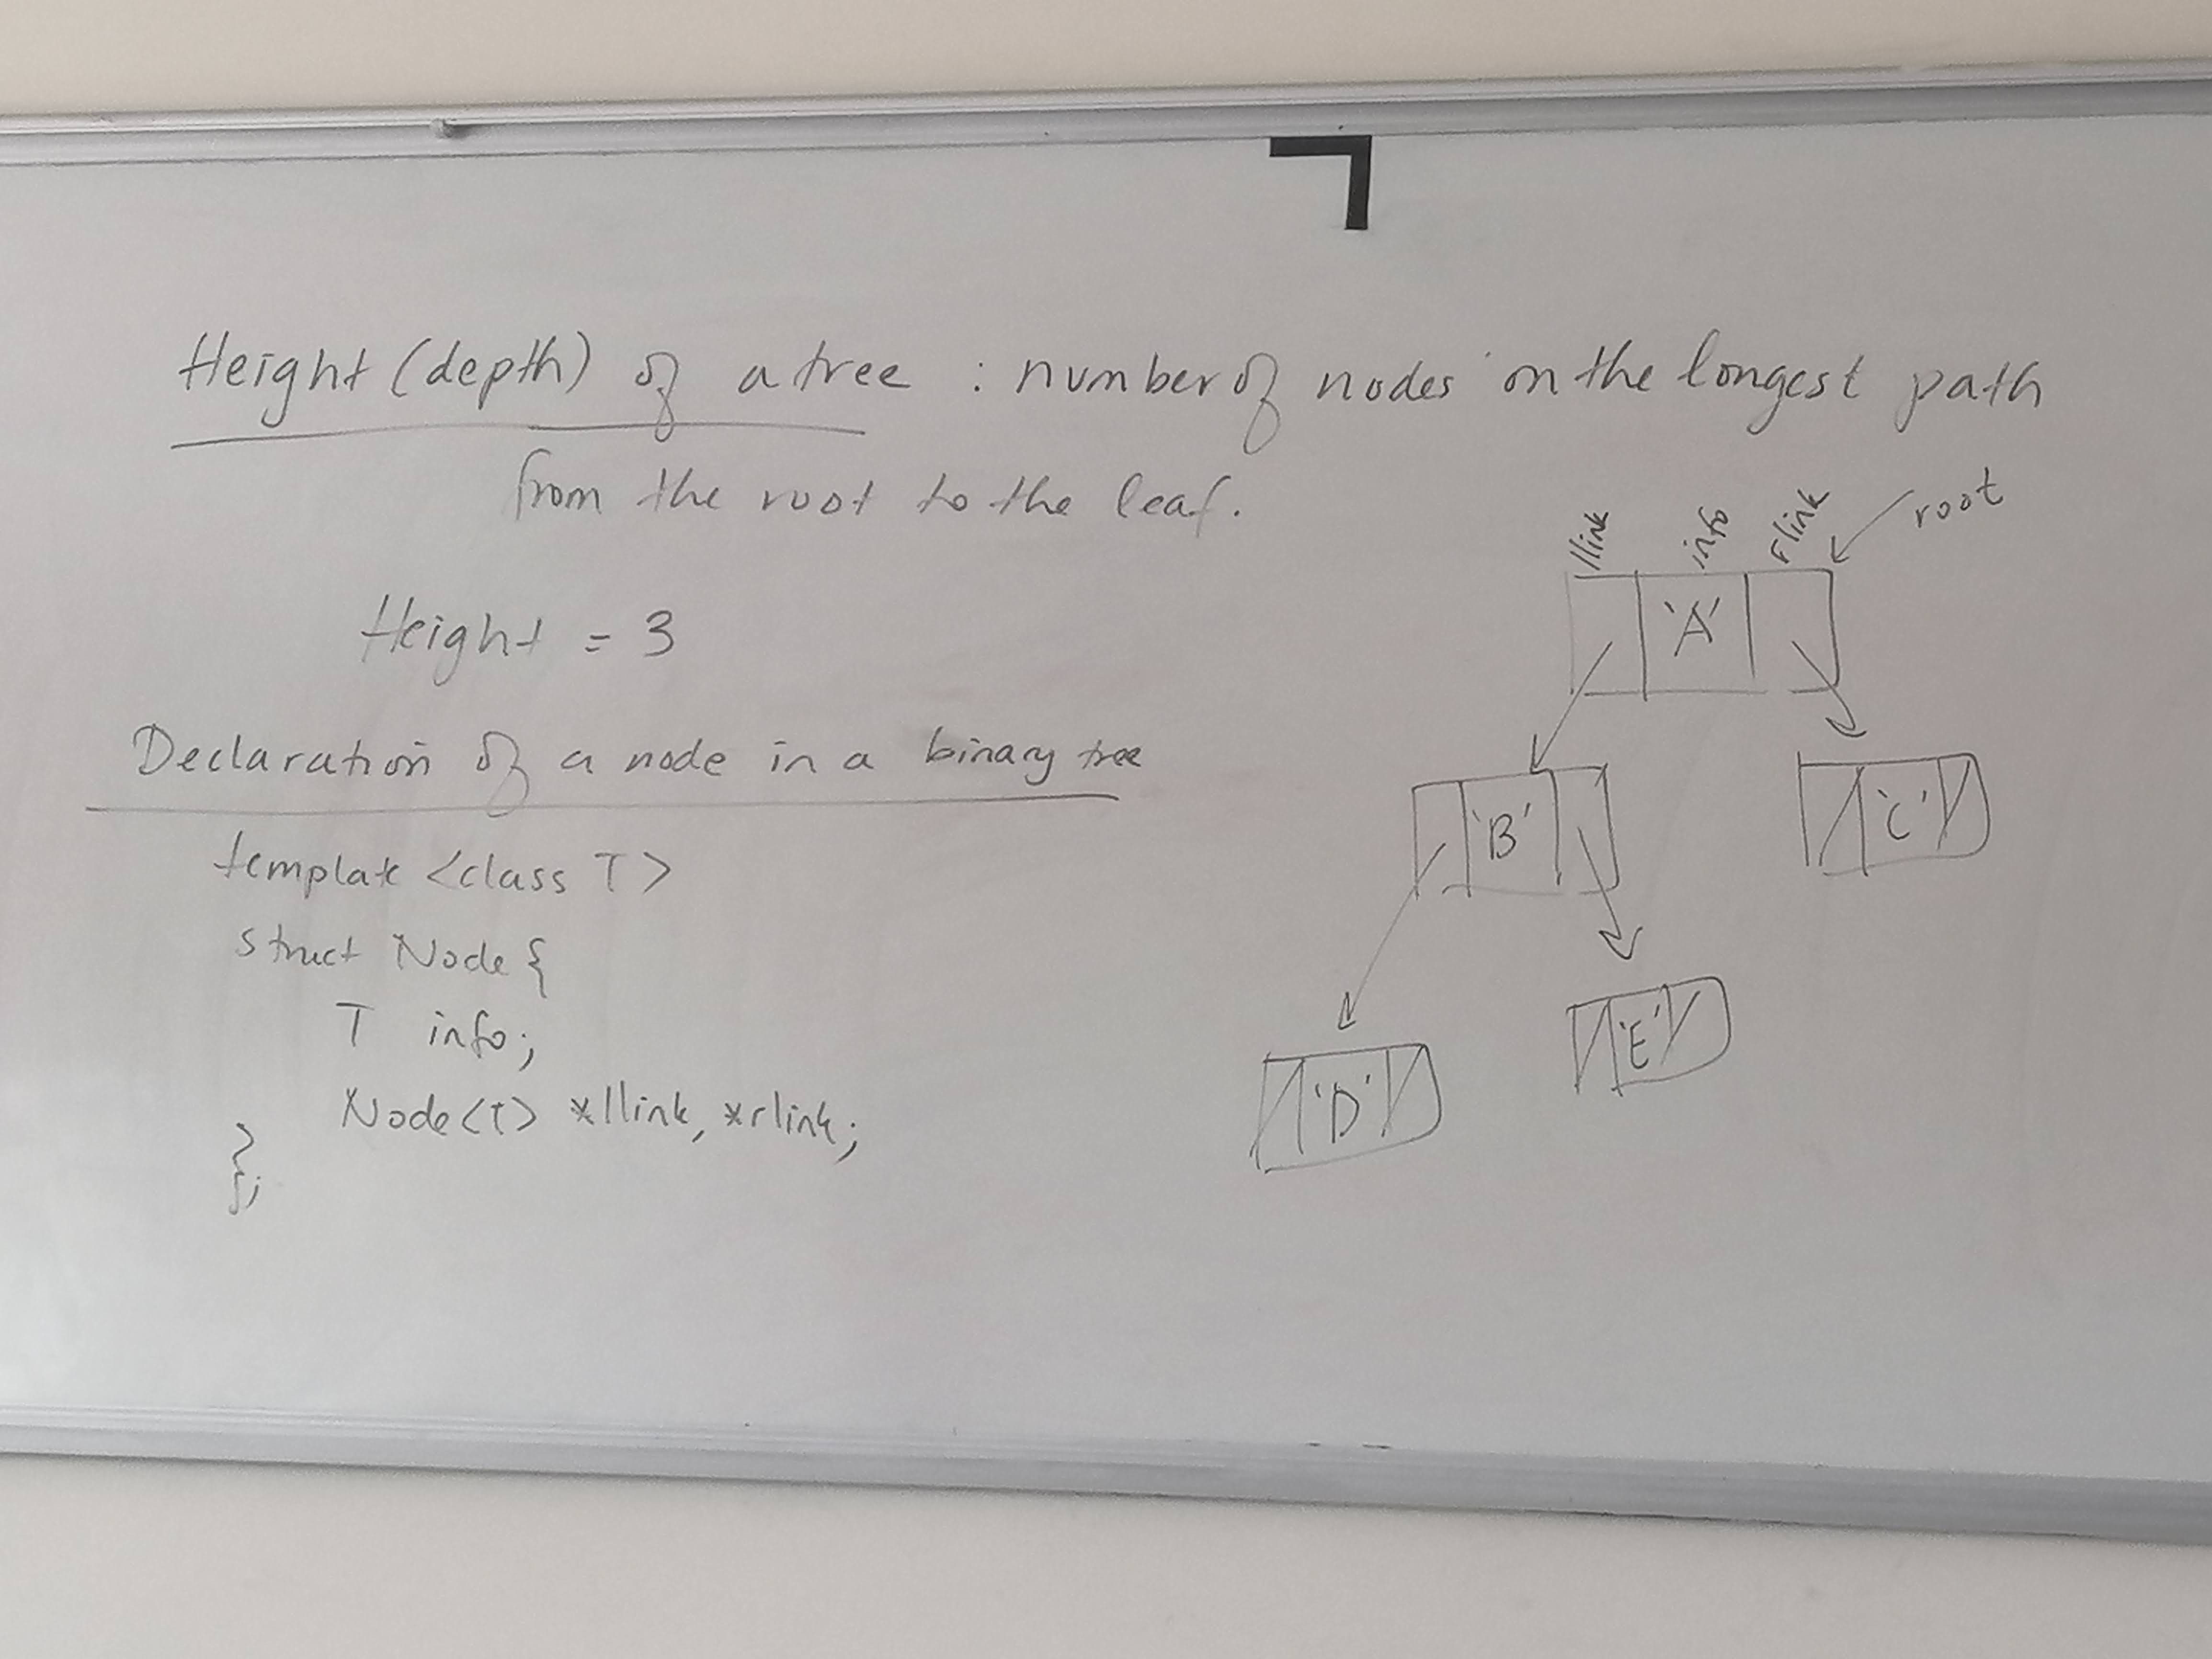 Height (depth) of a tree : number of nodes on the longest path
from the root to the leaf.
Height = 3
Declaration of a node in a binary tree
template <class T>
struct Node {
T info;
Node<T> *llink, *rlink;
};
llink info rlink root
'A'
'B' 'C'
'D' 'E'